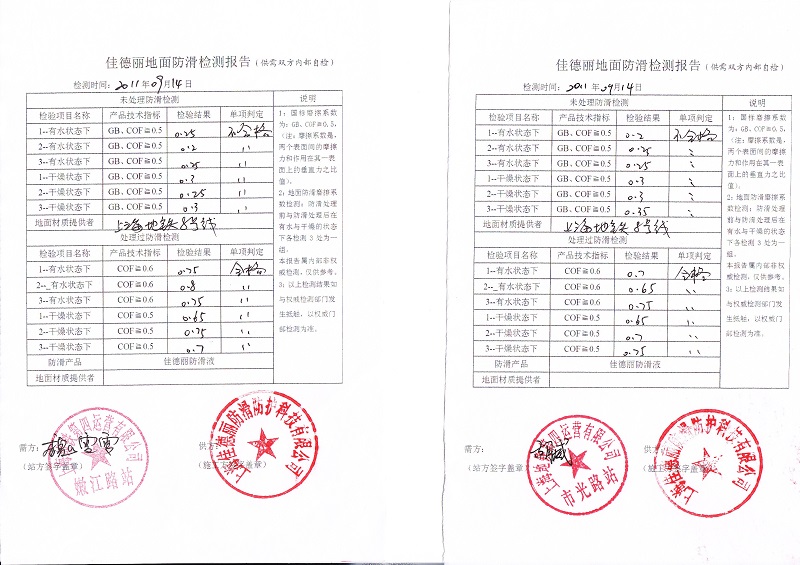 佳德丽地面防滑检测报告（供需双方内部自检）
检测时间：2011年09月14日
未处理防滑检测 说明
检验项目名称 产品技术指标 检验结果 单项判定
1--有水状态下 GB、COF≧0.5 0.25 不合格
2--有水状态下 GB、COF≧0.5 0.2 〃
3--有水状态下 GB、COF≧0.5 0.25 〃
1--干燥状态下 GB、COF≧0.5 0.3 〃
2--干燥状态下 GB、COF≧0.5 0.25 〃
3--干燥状态下 GB、COF≧0.5 0.3 〃
地面材质提供者 上海地铁8号线
处理过防滑检测
检验项目名称 产品技术指标 检验结果 单项判定
1--有水状态下 COF≧0.6 0.75 合格
2--_有水状态下 COF≧0.6 0.8 〃
3--有水状态下 COF≧0.6 0.75 〃
1--干燥状态下 COF≧0.5 0.65 〃
2--干燥状态下 COF≧0.5 0.75 〃
3--干燥状态下 COF≧0.5 0.7 〃
防滑产品 佳德丽防滑液
地面材质提供者
1：国标摩擦系数
为：GB、COF≧0.5，
（注：摩擦系数是，
两个表面间的摩擦
力和作用在其一表
面上的垂直力之比
值）。
2：地面防滑摩擦系
数检测：防滑处理
前与防滑处理后在
有水与干燥的状态
下各检测 3 处为一
组。
本报告属内部非权
威检测，仅供参考。
3：以上检测结果如
与权威检测部门发
生抵触，以权威门
部检测为准。
需方：
（站方签字盖章）
嫩江路站
供方：
上海佳德丽防滑防护科技有限公司
佳德丽地面防滑检测报告（供需双方内部自检）
检测时间：2011年09月14日
未处理防滑检测 说明
检验项目名称 产品技术指标 检验结果 单项判定
1--有水状态下 GB、COF≧0.5 0.2 不合格
2--有水状态下 GB、COF≧0.5 0.25 〃
3--有水状态下 GB、COF≧0.5 0.25 〃
1--干燥状态下 GB、COF≧0.5 0.3 〃
2--干燥状态下 GB、COF≧0.5 0.3 〃
3--干燥状态下 GB、COF≧0.5 0.35 〃
地面材质提供者 上海地铁8号线
处理过防滑检测
检验项目名称 产品技术指标 检验结果 单项判定
1--有水状态下 COF≧0.6 0.7 合格
2--_有水状态下 COF≧0.6 0.65 〃
3--有水状态下 COF≧0.6 0.75 〃
1--干燥状态下 COF≧0.5 0.65 〃
2--干燥状态下 COF≧0.5 0.7 〃
3--干燥状态下 COF≧0.5 0.75 〃
防滑产品 佳德丽防滑液
地面材质提供者
1：国标摩擦系数
为：GB、COF≧0.5，
（注：摩擦系数是，
两个表面间的摩擦
力和作用在其一表
面上的垂直力之比
值）。
2：地面防滑摩擦系
数检测：防滑处理
前与防滑处理后在
有水与干燥的状态
下各检测 3 处为一
组。
本报告属内部非权
威检测，仅供参考。
3：以上检测结果如
与权威检测部门发
生抵触，以权威门
部检测为准。
需方：
（站方签字盖章）
市光路站
供方：
上海佳德丽防滑防护科技有限公司